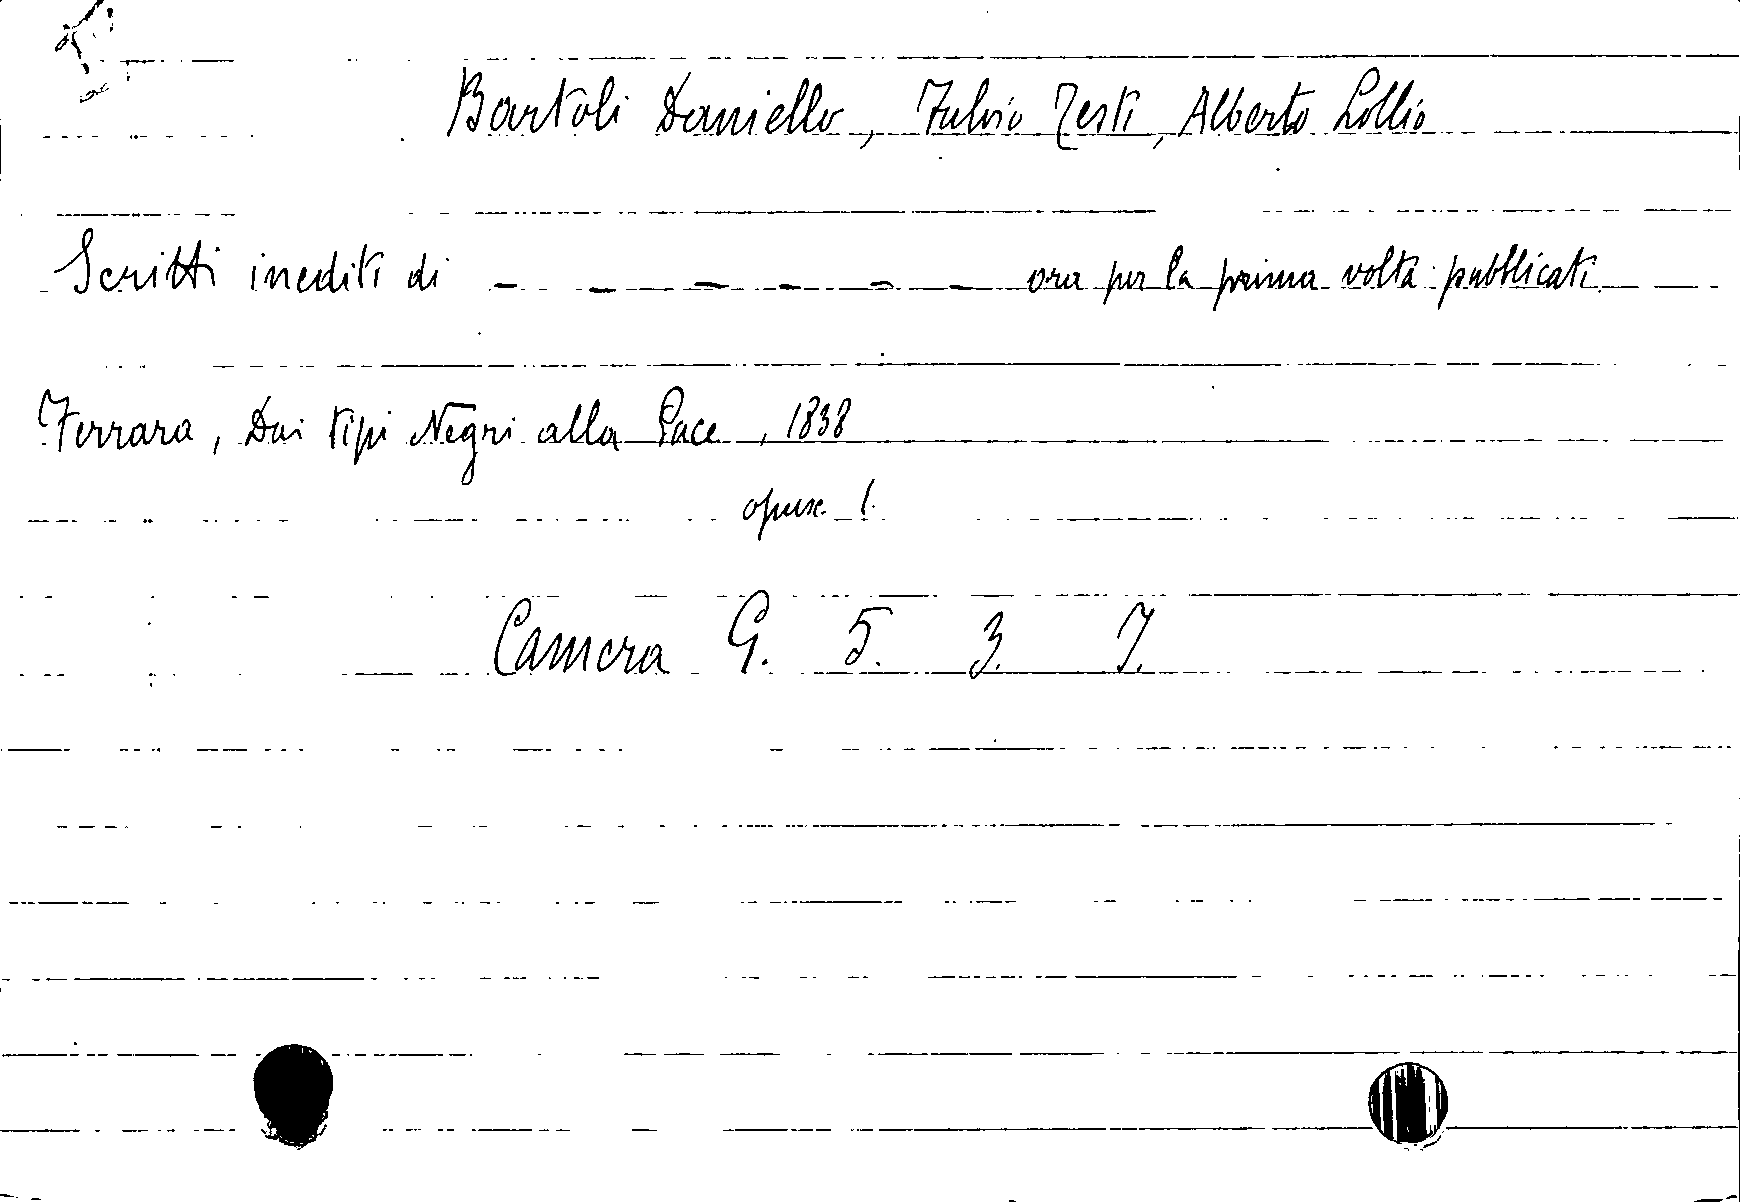 Bartoli Daniello, Fulvio Testi, Alberto Lollio
Scritti inediti di - - - - - - ora per la prima volta pubblicati
Ferrara, Dai tipi Negri alla Pace, 1838
opusc. 1.
Camera G. 5. 3. 7.